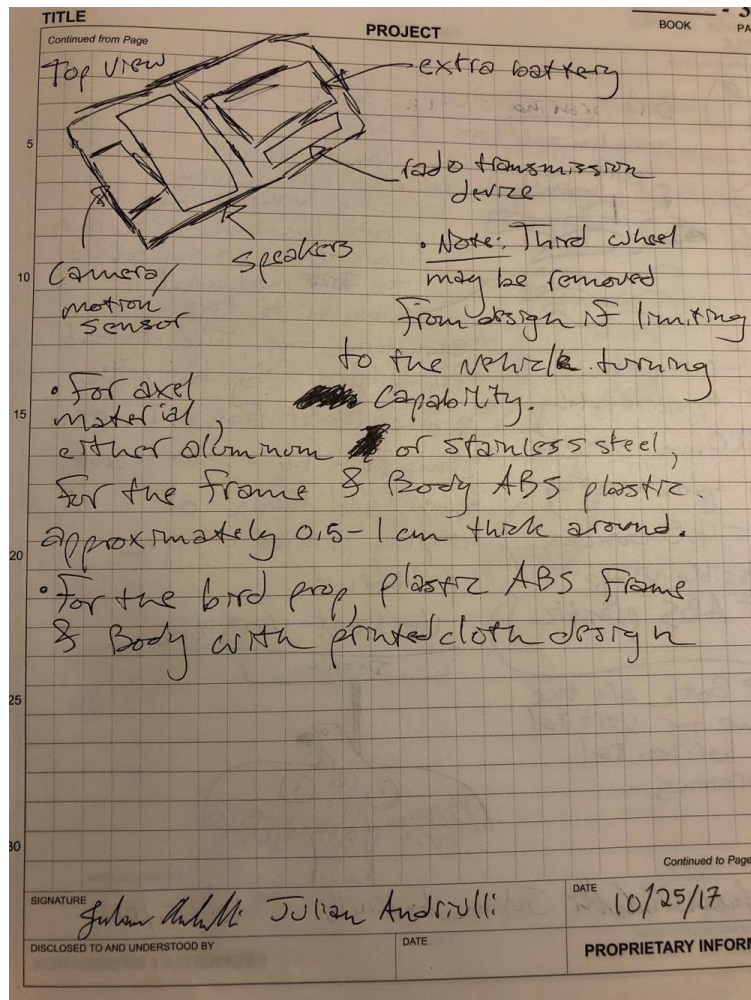 TITLE
PROJECT
BOOK
- 3
PA
Continued from Page
Top View
extra battery
5
rado transmission
device
Speakers
Camera/
motion
sensor
10
• Note: Third wheel
may be removed
from design if limiting
to the vehicle turning
Capability.
• For axel
material,
15
either aluminum or stainless steel,
For the frame & Body ABS plastic.
approximately 0.5-1 cm thick around.
20
• For the bird prop, plastic ABS Frame
& Body with printed cloth design
25
30
Continued to Page
SIGNATURE
Julian Andriulli
DATE
10/25/17
DISCLOSED TO AND UNDERSTOOD BY
DATE
PROPRIETARY INFORM